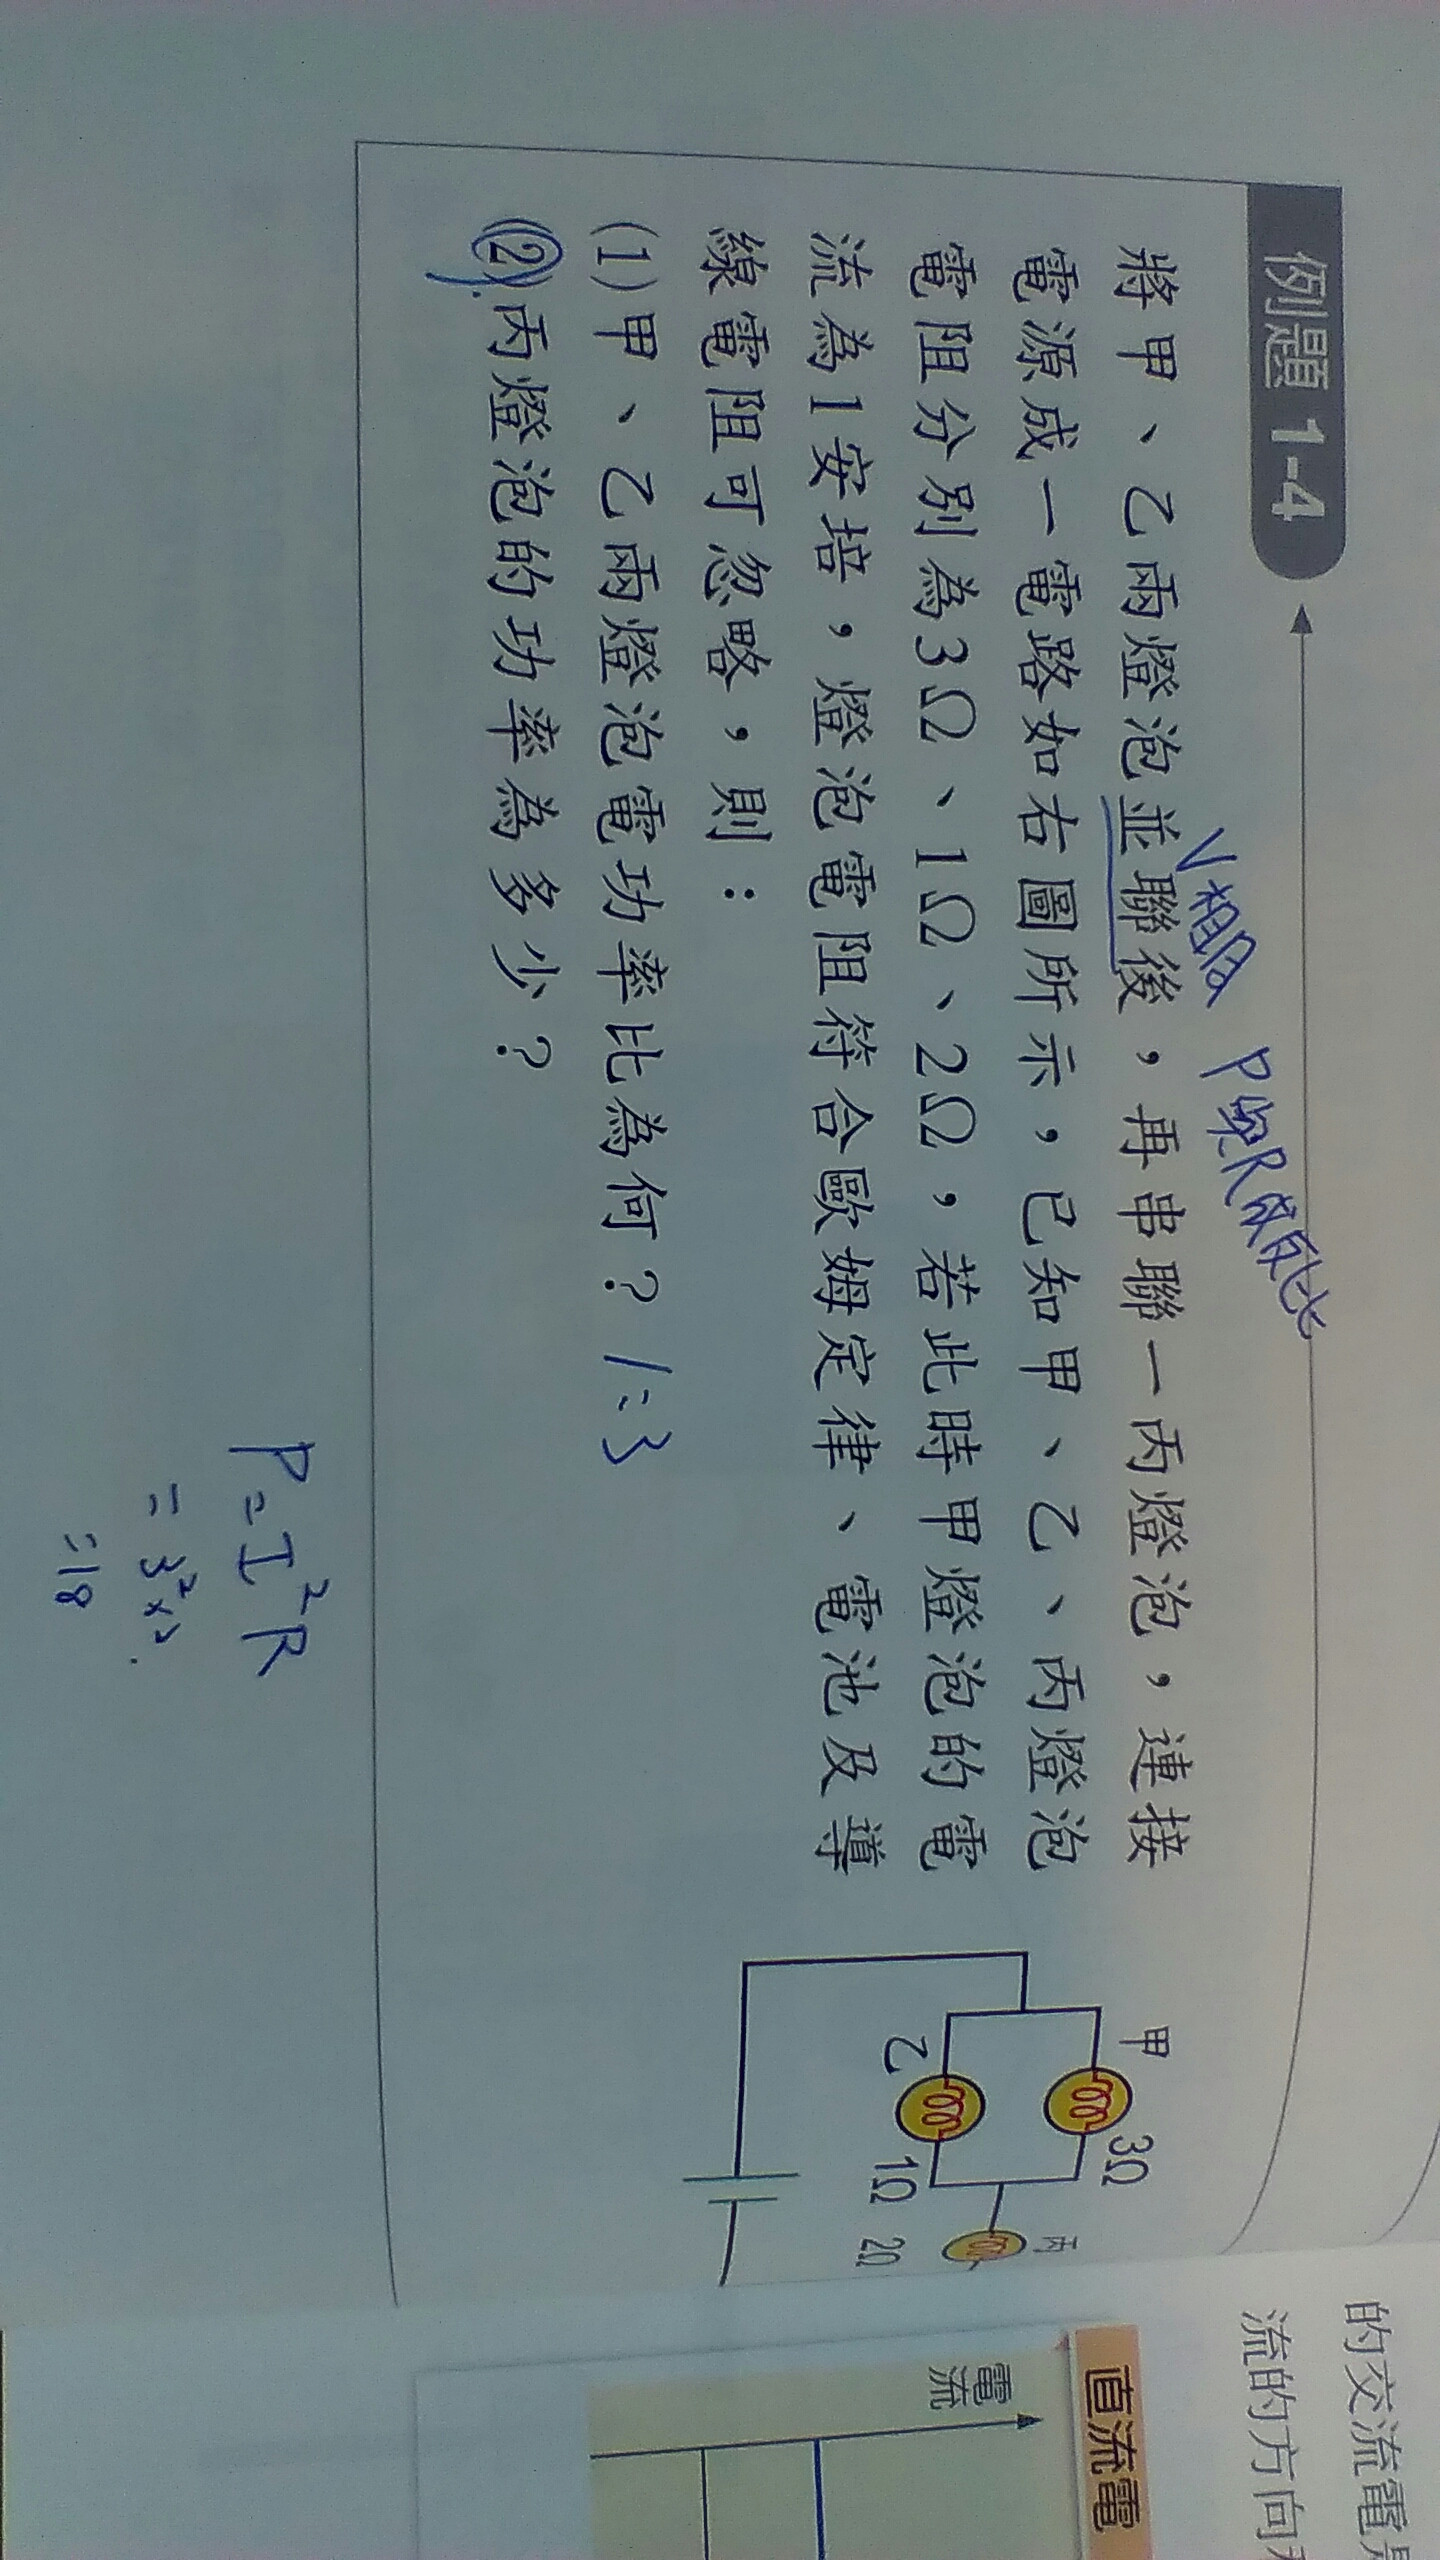 例題 1-4
V相同 P與R成反比
將甲、乙兩燈泡並聯後，再串聯一丙燈泡，連接
電源成一電路如右圖所示，已知甲、乙、丙燈泡
電阻分別為3Ω、1Ω、2Ω，若此時甲燈泡的電
流為1安培，燈泡電阻符合歐姆定律、電池及導
線電阻可忽略，則：
(1)甲、乙兩燈泡電功率比為何？1:3
(2)丙燈泡的功率為多少？
甲 3Ω
乙 1Ω
丙 2Ω
P=I²R
=3²×2
=18
的交流電
流的方向
直流電
電流